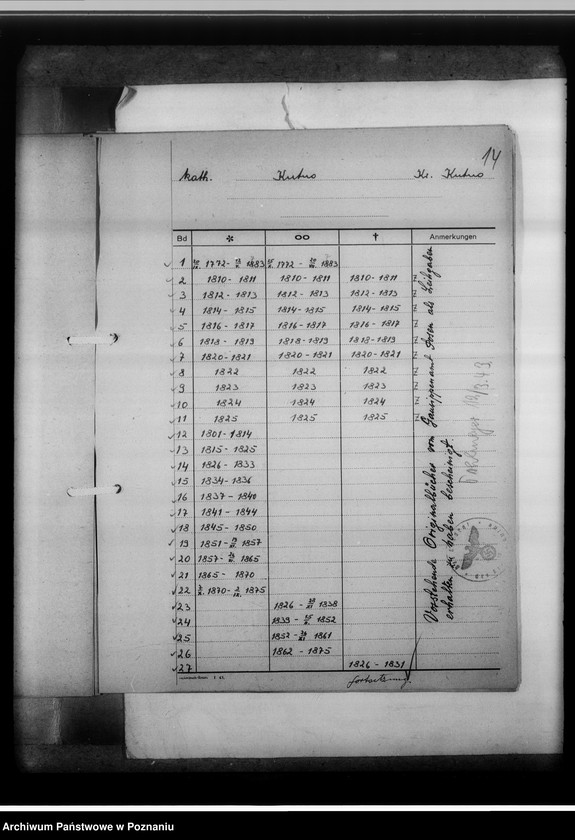 14
kath. Kutno Kr. Kutno
Bd * ∞ † Anmerkungen
1 1772- 1883 1772 - 1883
2 1810-1811 1810-1811 1810-1811 Z
3 1812-1813 1812-1813 1812-1813 Z
4 1814-1815 1814-1815 1814-1815 Z
5 1816-1817 1816-1817 1816-1817 Z
6 1818-1819 1818-1819 1818-1819 Z
7 1820-1821 1820-1821 1820-1821 Z
8 1822 1822 1822 Z
9 1823 1823 1823 Z
10 1824 1824 1824 Z
11 1825 1825 1825 Z
12 1801-1814
13 1815-1825
14 1826-1833
15 1834-1836
16 1837-1840
17 1841-1844
18 1845-1850
19 1851- 1857
20 1857- 1865
21 1865-1870
22 1870- 1875
23 1826 - 1838
24 1839 - 1852
25 1852 - 1861
26 1862 - 1875
27 1826-1831
Fortsetzung.
Vorstehende Originalbücher vom Gausippenamt Posen als Leihgaben
erhalten zu haben bescheinigt.
Archiwum Państwowe w Poznaniu